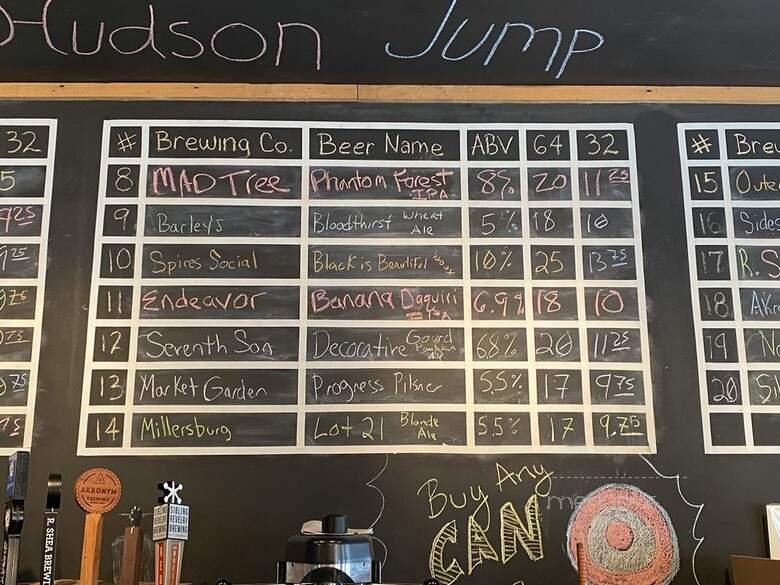 Hudson Jump
32 # Brewing Co. Beer Name ABV 64 32 # Brew
5 8 MAD Tree Phantom Forest IPA 8% 20 11.25 15 Oute
9.25 9 Barley's Bloodthirst Wheat Ale 5% 18 10 16 Sides
9.25 10 Spires Social Black is Beautiful 10% 25 13.75 17 R.S
11 Endeavor Banana Daquiri IPA 6.9% 18 10 18 Akr
12 Seventh Son Decorative Gourd Pumpkin Ale 6.8% 20 11.25 19 No
13 Market Garden Progress Pilsner 5.5% 17 9.75 20 Si
14 Millersburg Lot 21 Blonde Ale 5.5% 17 9.75
Buy Any
CAN
AKRONYM
BREWING
R. SHEA BREWI
SIBLING
REVELRY
BREWING